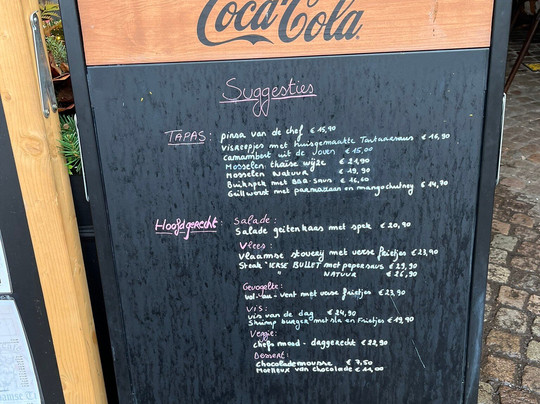 Coca-Cola
Suggesties
TAPAS: pinsa van de chef € 15,90
Visreepjes met huisgemaakte Tartaarsaus € 16,90
Camambert uit de oven € 15,00
Mosselen thaise wijze € 21,90
Mosselen natuur € 19,90
Buikspek met BBQ-saus € 16,60
Grillworst met parmazaan en mangochutney € 14,90
Hoofdgerecht: Salade:
Salade geitenkaas met spek € 20,90
Vlees:
Vlaamse stoverij met verse frietjes € 23,90
Steak "IERSE BULLET" met pepersaus € 29,90
NATUUR € 26,90
Gevogelte:
Vol-au-vent met verse frietjes € 23,90
Vis:
Vis van de dag € 24,90
Shrimp burger met sla en Frietjes € 19,90
Veggie:
chefs mood - daggerecht € 22,90
Dessert:
Chocolademousse € 7,50
Moelleux van chocolade € 11,00